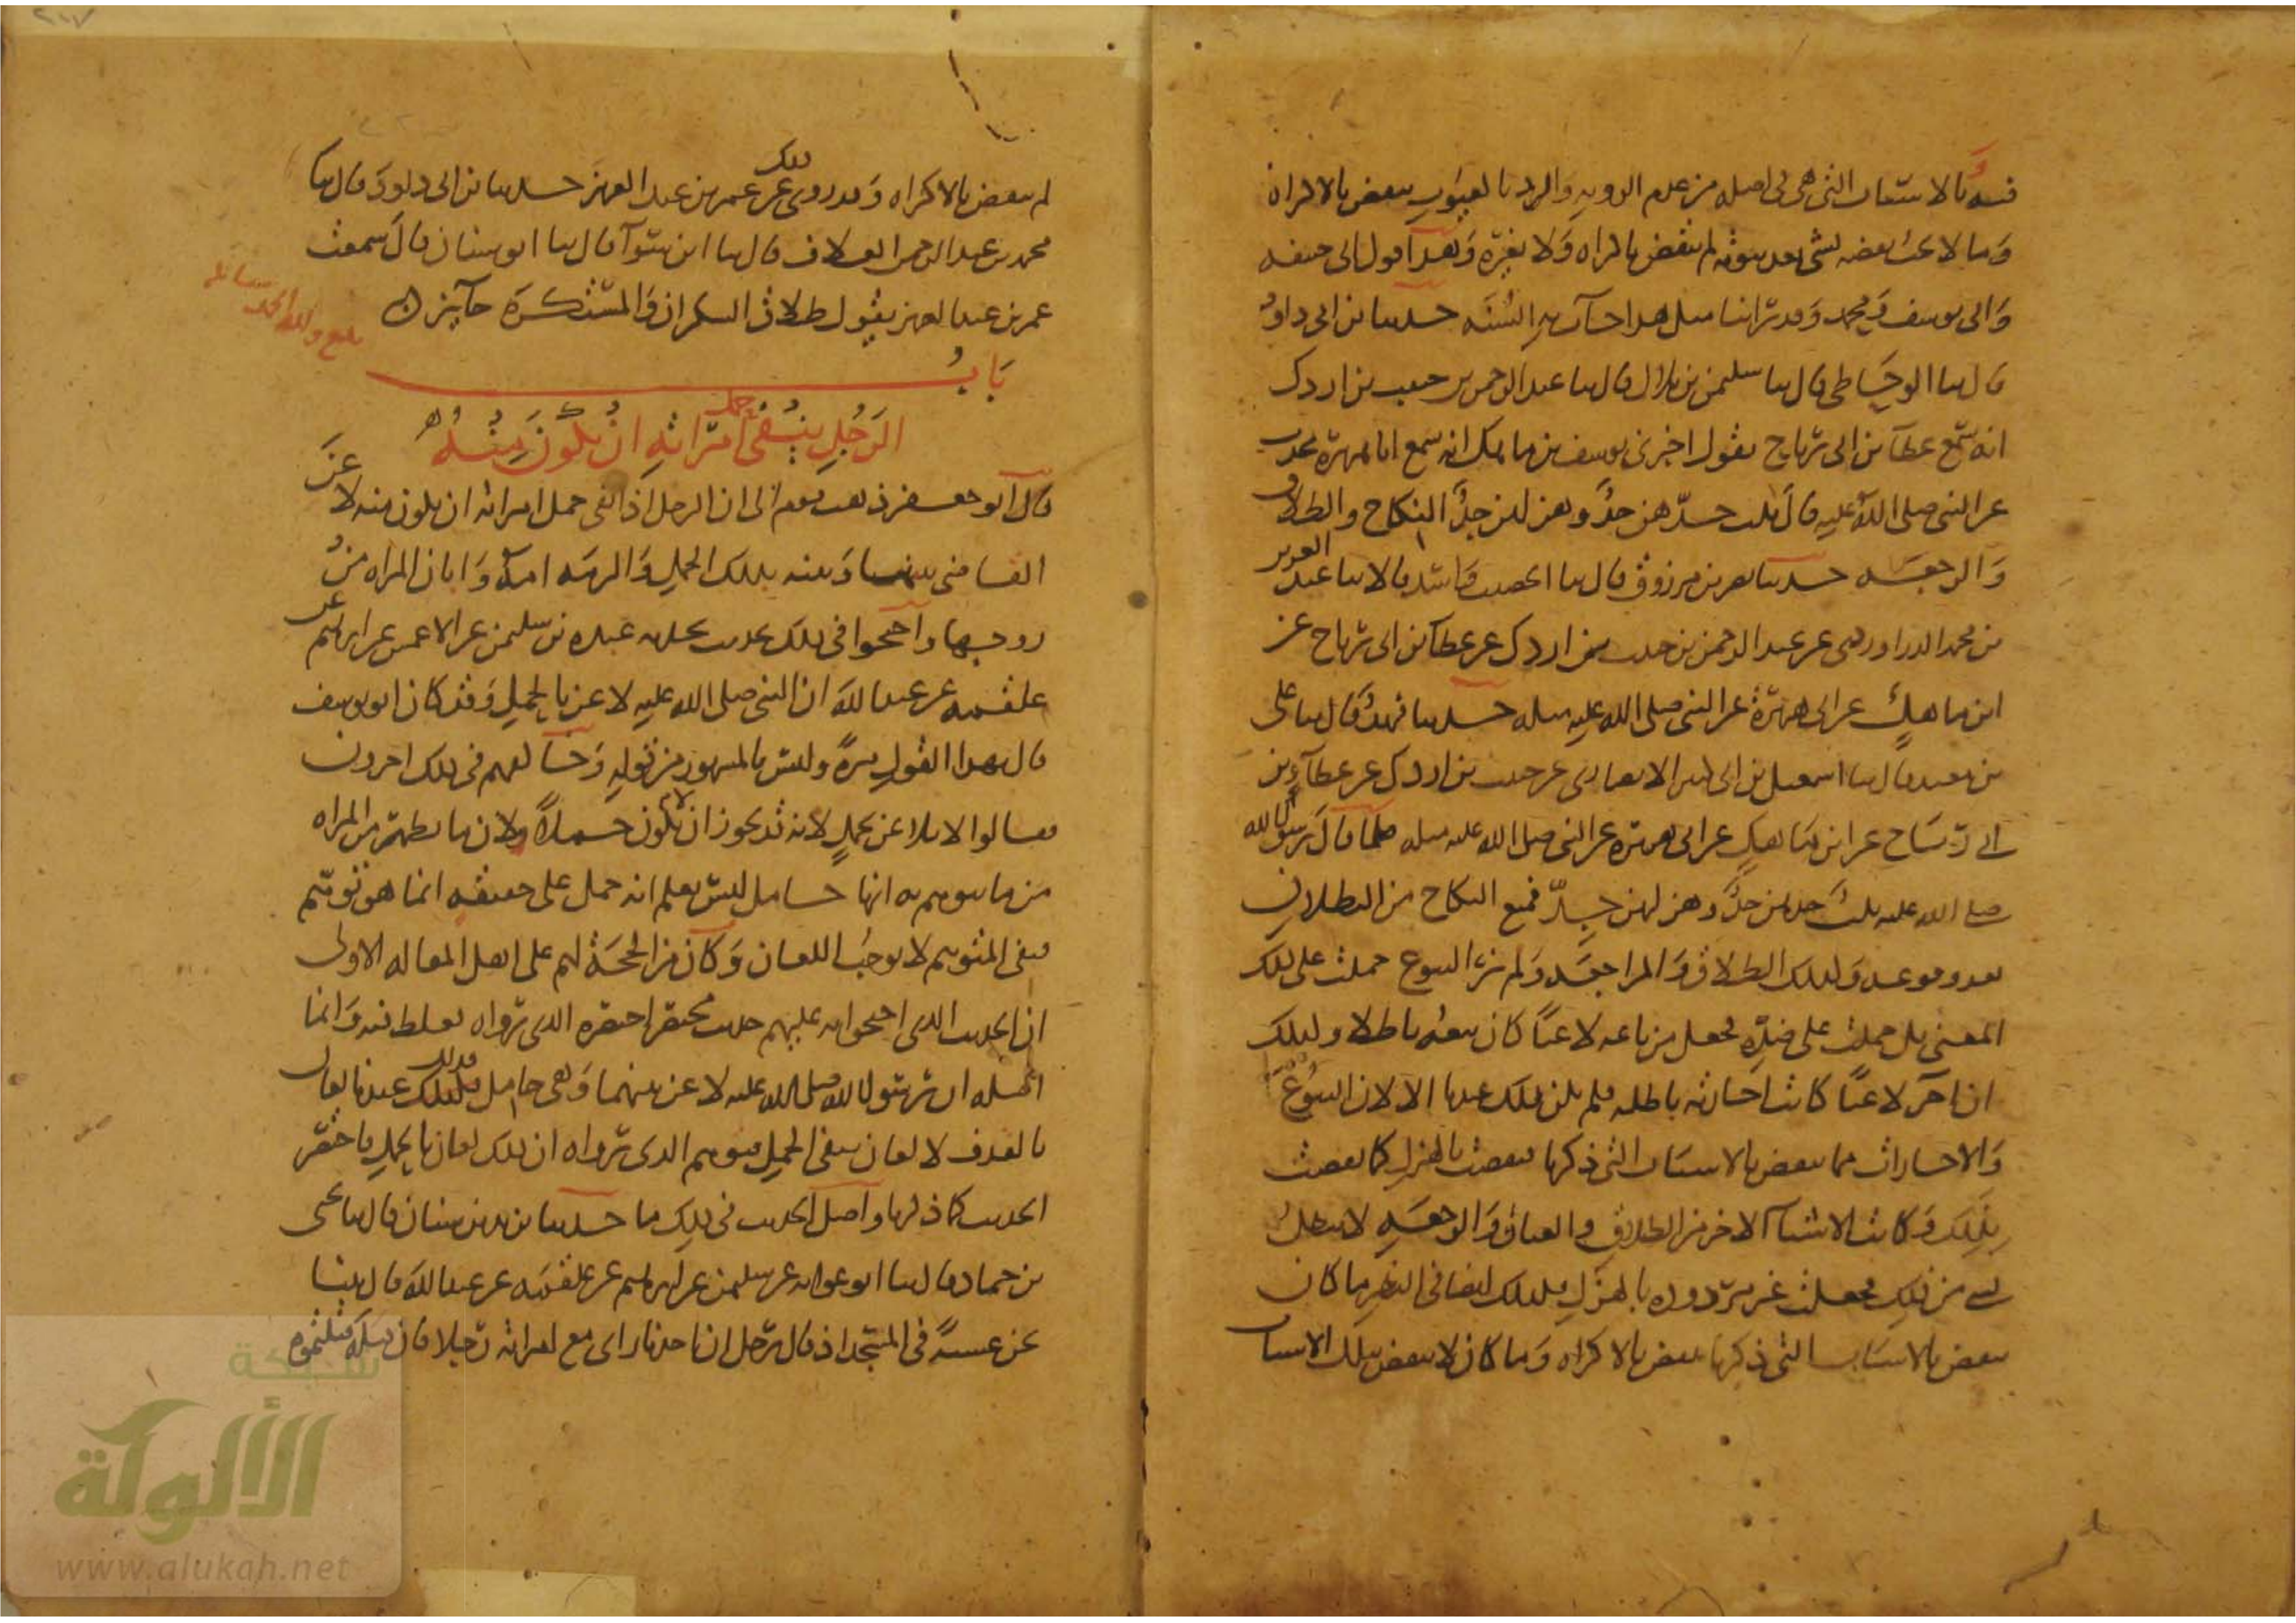 فسه وبالاستثناءات التى هى فى اصله من عدم الرويه والرد بالعيوب ينقض بالاكراه
وما لا يجب نقضه بشى بعد ثبوته لم ينقض باكراه ولا بغيره وهذا قول ابى حنيفه
وابى يوسف ومحمد وقد راينا مثل هذا جات به السنه حدثنا بن ابى داود
قال ثنا الوحاظى قال ثنا سليمن بن بلال قال ثنا عبد الرحمن بن حبيب بن اردك
انه سمع عطا بن ابى رباح يقول اخبرنى يوسف بن ماهك انه سمع ابا هريرة يحدث
عن النبى صلى الله عليه قال ثلث جدهن جد وهزلهن جد النكاح والطلاق
والرجعه حدثنا نصر بن مرزوق قال ثنا الخصيب واسد قالا ثنا عبد العزيز
بن محمد الدراوردى عن عبد الرحمن بن حبيب بن اردك عن عطا بن ابى رباح عن
ابن ماهك عن ابى هريرة عن النبى صلى الله عليه مثله حدثنا فهد قال ثنا على
بن معبد قال ثنا اسمعيل بن ابى كثير الانصارى عن حبيب بن اردك عن عطآء بن
ابى رباح عن ابن ماهك عن ابى هريره عن النبى صلى الله عليه مثله فلما قال رسول الله
صلى الله عليه ثلث جدهن جد وهزلهن جد فمنع النكاح من البطلان
بعد وقوعه وكذلك الطلاق والمراجعه ولم نر البيوع حملت على ذلك
المعنى بل حملت على ضده فجعل من باع لاعبا كان بيعه باطلا وكذلك
ان اجر لاعبا كانت اجارته باطله فلم يكن ذلك عندنا الا لان البيوع
والاجارات مما ينقض بالاسباب التى ذكرنا فنقضت بالهزل كما نقضت
بذلك وكانت الاشيآ الاخر من الطلاق والعتاق والرجعه لا يبطلها
شى من ذلك فجعلت غير مردوده بالهزل فكذلك ايضا فى النظر ما كان
ينقض بالاسباب التى ذكرنا ينقض بالاكراه وما كان لا ينقض بتلك الاسباب
لم ينقض بالاكراه وقد روى ذلك عن عمر بن عبد العزيز حدثنا بن ابى داود قال ثنا
محمد بن عبد الرحمن العلاف قال ثنا ابن سوآ قال ثنا ابو سنان قال سمعت
عمر بن عبد العزيز يقول طلاق السكران والمستكره جآيز
بلغ ولله الحمد
باب
الرجل ينفى حمل امراته ان يكون منه
قال ابو جعفر ذهب قوم الى ان الرجل اذا نفى حمل امراته ان يكون منه لاعن
القاضى بينهما وبينه بذلك الحمل والزمه امه وابان المراه من
زوجها واحتجوا فى ذلك بحديث يحدثه عبده بن سليمن عن الاعمش عن ابرهيم عن
علقمه عن عبد الله ان النبى صلى الله عليه لاعن بالحمل وقد كان ابو يوسف
قال بهذا القول مرة وليس بالمشهور من قوله وخالفهم فى ذلك اخرون
فقالوا لا يلاعن بحمل لانه قد يجوز ان لا يكون حملا ولان ما يظهر من المراه
من ما يتوهم به انها حامل ليس يعلم انه حمل على حقيقه انما هو توهم
فنفى المتوهم لا يوجب اللعان وكان من الحجة لهم على اهل المقاله الاولى
ان الحديث الذى احتجوا به عليهم حديث مختصر اختصره الذى رواه فغلط فيه وانما
اصله ان رسول الله صلى الله عليه لاعن بينهما وهى حامل فذلك عندنا لعان
بالقذف لا لعان بنفى الحمل فتوهم الذى رواه ان ذلك لعان بالحمل فاختصر
الحديث كما ذكرنا واصل الحديث فى ذلك ما حدثنا يزيد بن سنان قال ثنا يحيى
بن حماد قال ثنا ابو عوانه عن سليمن عن ابرهيم عن علقمه عن عبد الله قال بينا
نحن عشية فى المسجد اذ قال رجل ان احدنا راى مع امراته رجلا فان قتله قتلتموه
شبكة
الألوكة
www.alukah.net